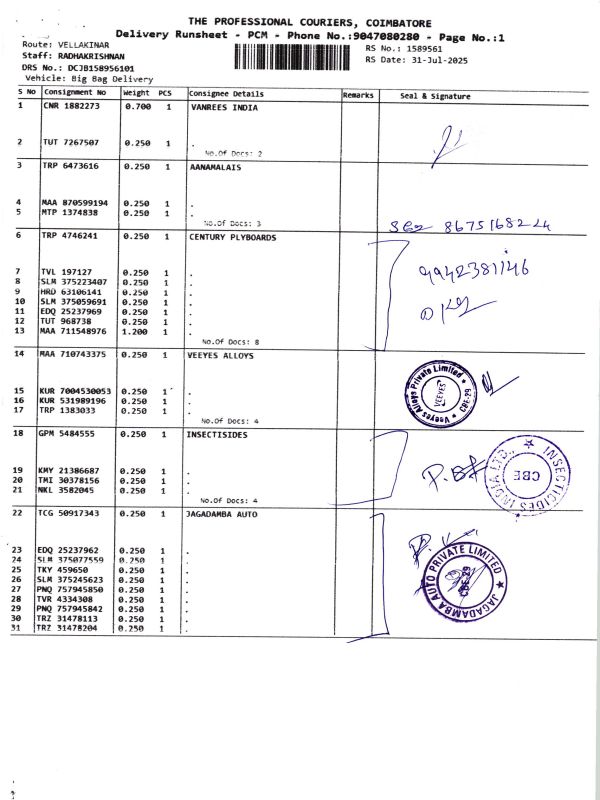 THE PROFESSIONAL COURIERS, COIMBATORE
Delivery Runsheet - PCM - Phone No.:9047080280 - Page No.:1
Route: VELLAKINAR
RS No.: 1589561
Staff: RADHAKRISHNAN
RS Date: 31-Jul-2025
DRS No.: DCJB158956101
Vehicle: Big Bag Delivery
S No Consignment No Weight PCS Consignee Details Remarks Seal & Signature
1 CNR 1882273 0.700 1 VANREES INDIA
2 TUT 7267507 0.250 1 .
No.Of Docs: 2
3 TRP 6473616 0.250 1 AANAMALAIS
4 MAA 870599194 0.250 1 .
5 MTP 1374838 0.250 1 .
No.Of Docs: 3
8675168224
6 TRP 4746241 0.250 1 CENTURY PLYBOARDS
9942381146
7 TVL 197127 0.250 1 .
8 SLM 375223407 0.250 1 .
9 HRD 63106141 0.250 1 .
10 SLM 375059691 0.250 1 .
11 EDQ 25237969 0.250 1 .
12 TUT 968738 0.250 1 .
13 MAA 711548976 1.200 1 .
No.Of Docs: 8
14 MAA 710743375 0.250 1 VEEYES ALLOYS
Veeyes Alloys Private Limited
VEEYES
CBE-29
15 KUR 7004530053 0.250 1 .
16 KUR 531989196 0.250 1 .
17 TRP 1383033 0.250 1 .
No.Of Docs: 4
18 GPM 5484555 0.250 1 INSECTISIDES
INSECTICIDES INDIA LTD.,
CBE
19 KMY 21386687 0.250 1 .
20 TMI 30378156 0.250 1 .
21 NKL 3582045 0.250 1 .
No.Of Docs: 4
22 TCG 50917343 0.250 1 JAGADAMBA AUTO
JAGADAMBA AUTO PRIVATE LIMITED
CBE-29
23 EDQ 25237962 0.250 1 .
24 SLM 375077559 0.250 1 .
25 TKY 459650 0.250 1 .
26 SLM 375245623 0.250 1 .
27 PNQ 757945850 0.250 1 .
28 TVR 4334308 0.250 1 .
29 PNQ 757945842 0.250 1 .
30 TRZ 31478113 0.250 1 .
31 TRZ 31478204 0.250 1 .